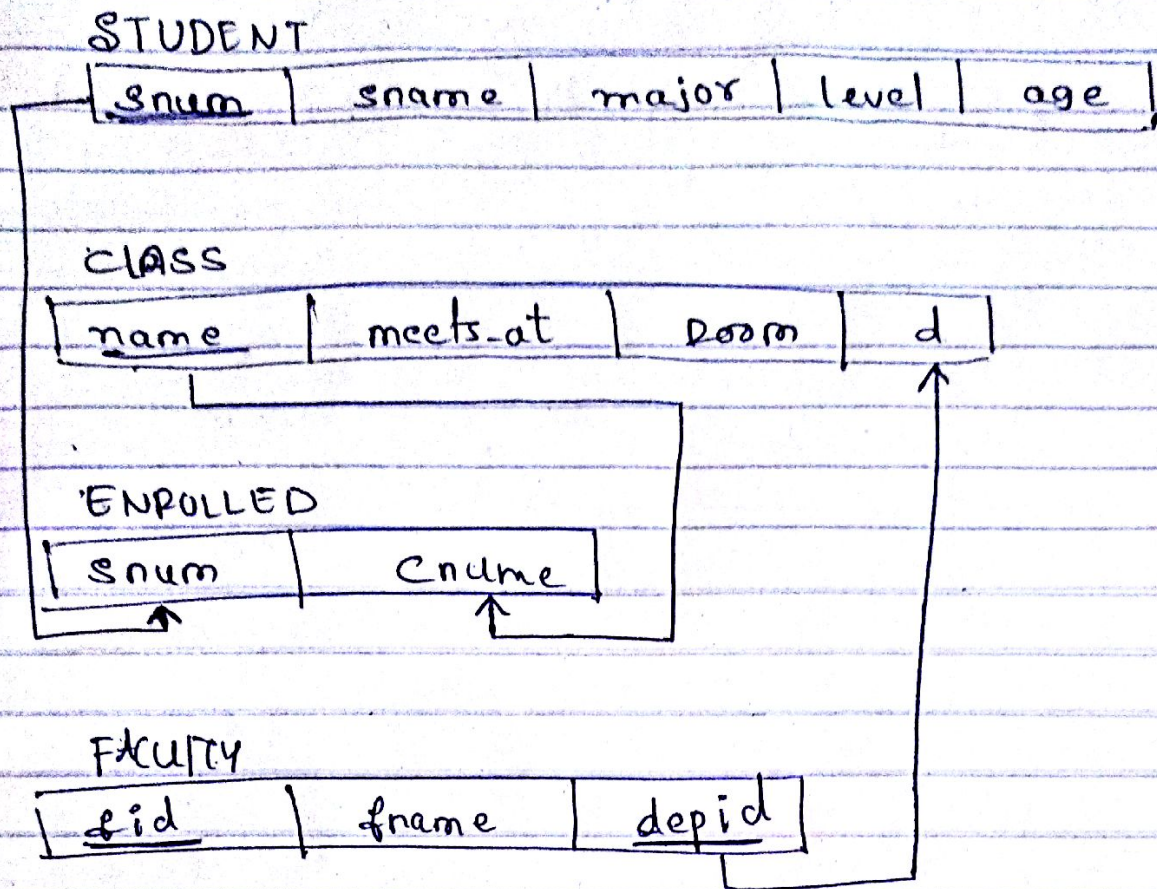 STUDENT
snum sname major level age
ClASS
name meets-at Room d
ENROLLED
snum Cnume
FACUlTY
fid fname depid